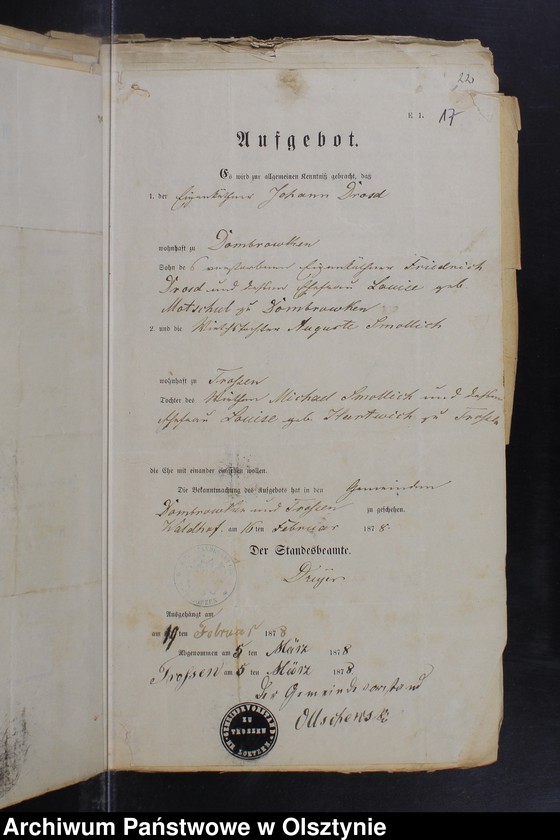 22
E 1.
17
Aufgebot.
Es wird zur allgemeinen Kenntniß gebracht, daß
1. der Eigenkäthner Johann Drosd
wohnhaft zu Dombrowken
Sohn des verstorbenen Eigenkäthners Friedrich
Drosd und dessen Ehefrau Louise geb
Motschul zu Dombrowken
2. und die Wirthstochter Auguste Smollich
wohnhaft zu Trossen
Tochter des Wirthen Michael Smollich und dessen
Ehefrau Louise geb. Hartwich zu Trossen
die Ehe mit einander eingehen wollen.
Die Bekanntmachung des Aufgebots hat in den Gemeinden
Dombrowken und Trossen zu geschehen.
Waldhof. am 16 ten Februar 1878.
Der Standesbeamte.
Ausgehängt am
am 19 ten Februar 1878
Abgenommen am 5 ten März 1878
Trossen am 5 ten März 1878.
Der Gemeindevorstand
GEMEINDEVORSTAND
ZU
TROSSEN
KR. LOETZEN
Archiwum Państwowe w Olsztynie